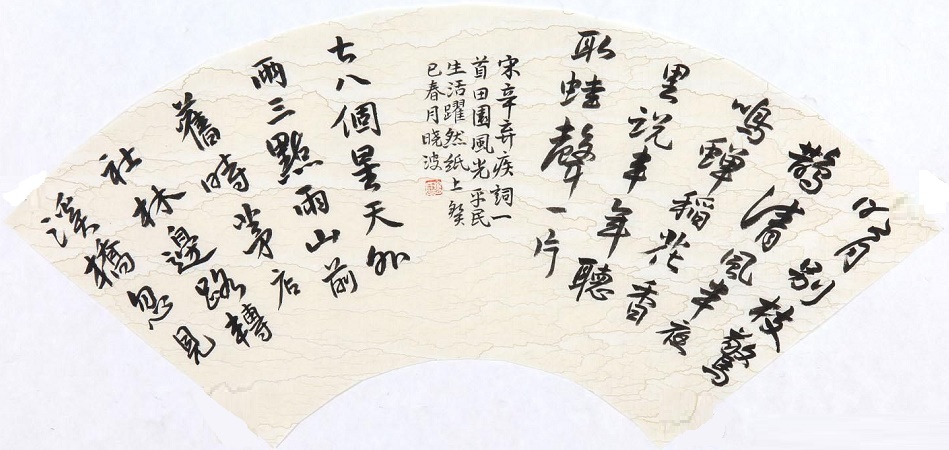 明月别枝驚
鵲清風半夜
鳴蟬稻花香
里説丰年聽
取蛙聲一片
宋辛弃疾詞一
首田園風光平民
生活躍然紙上癸
巳春月晓波
七八個星天外
兩三點雨山前
舊時茅店
社林邊路轉
溪橋忽見